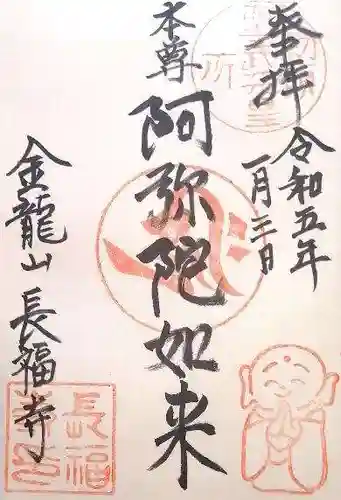 奉拝
令和五年
一月三日
本尊
阿弥陀如来
金龍山 長福寺